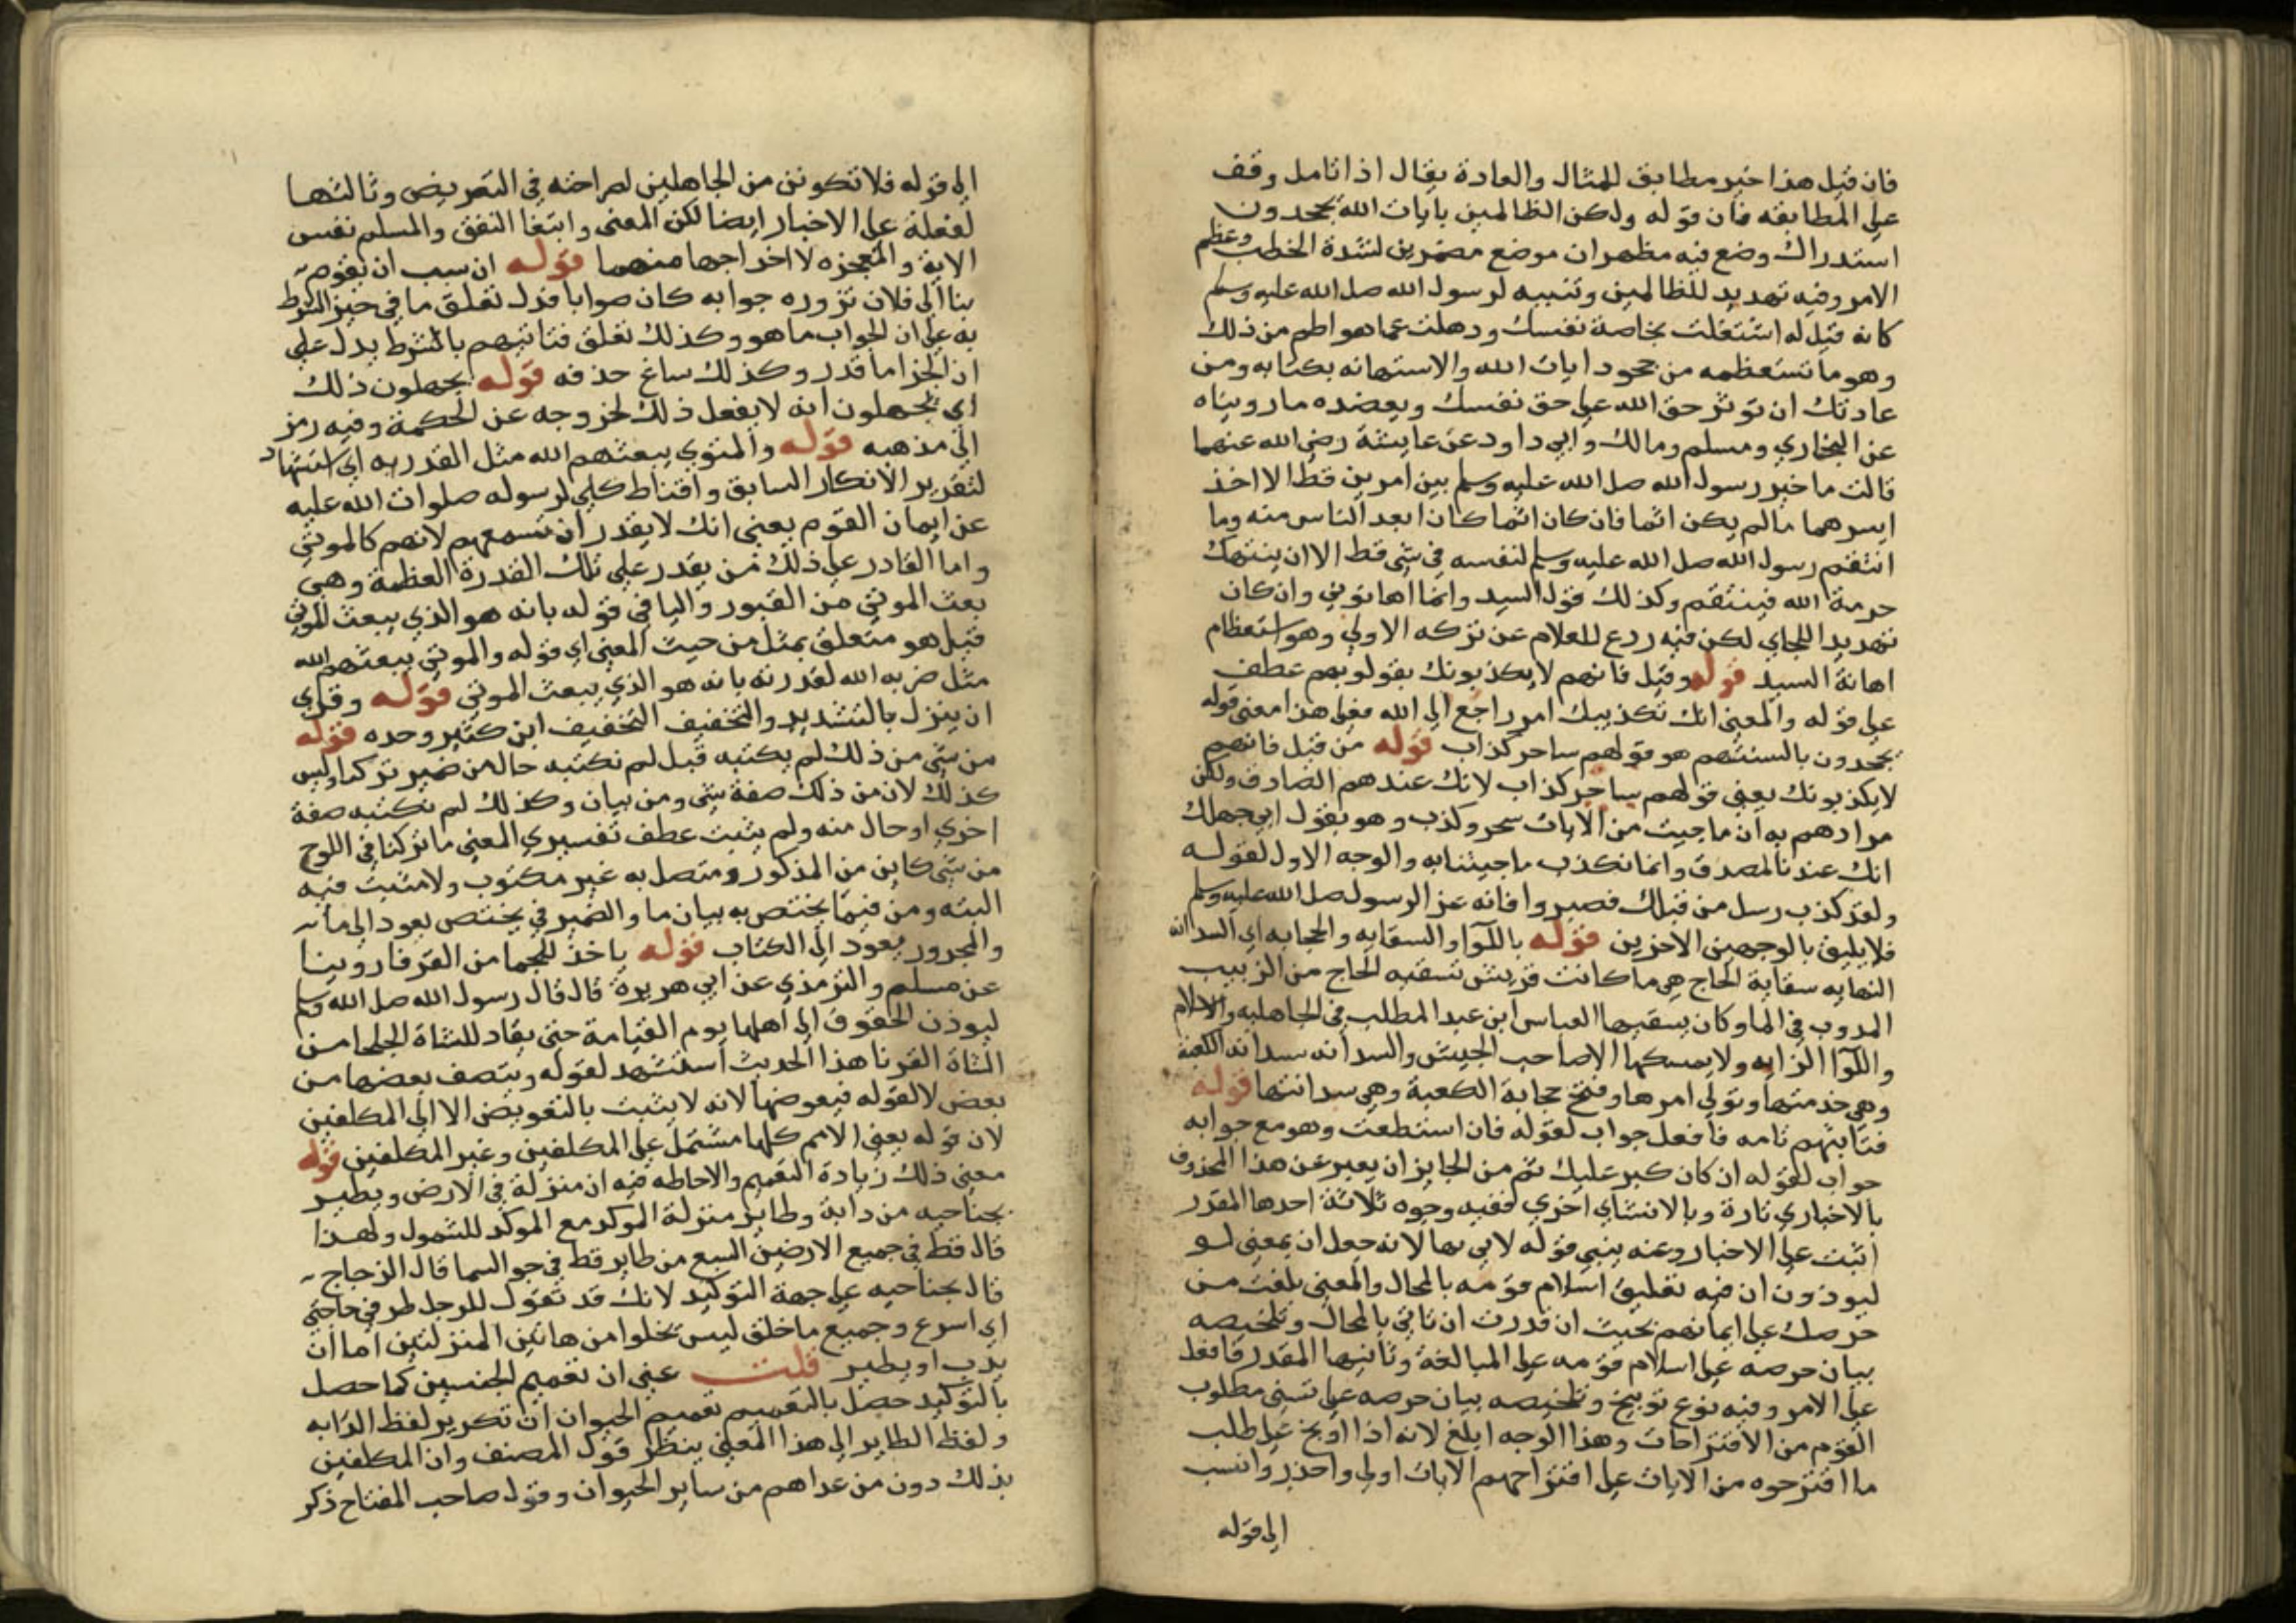 فان قيل هذا خبر مطابق للمثال والعادة يقال اذا تامل وقف
علي المطابقه فان قوله ولكن الظالمين بايات الله يجحدون
استدراك وضع فيه مظهران موضع مضمرين لشدة الخطب وعظم
الامر وفيه تهديد للظالمين وتنبيه لرسول الله صلى الله عليه وسلم
كانه قيل له اشتغلت بخاصة نفسك وذهلت عما هو اطم من ذلك
وهو ما تستعظمه من جحود ايات الله والاستهانه بكتابه ومن
عادتك ان توثر حق الله علي حق نفسك ويعضده ما رويناه
عن البخاري ومسلم ومالك وابي داود عن عايشة رضي الله عنهما
قالت ما خير رسول الله صلى الله عليه وسلم بين امرين قط الا اخذ
ايسرهما ما لم يكن اثما فان كان اثما كان ابعد الناس منه وما
انتقم رسول الله صلى الله عليه وسلم لنفسه في شي قط الا ان ينتهك
حرمة الله فينتقم وكذلك قول السيد وانما اهانوني وان كان
تهديدا للجاي لكن فيه ردع للغلام عن تركه الاولي وهو استعظام
اهانة السيد قوله وقيل فانهم لا يكذبونك بقولوبهم عطف
علي قوله والمعني انك تكذيبك امر راجع الي الله فعلي هذا معني قوله
يجحدون بالسنتهم هو قولهم ساحر كذاب قوله من قبل فانهم
لا يكذبونك يعني قولهم ساحر كذاب لانك عندهم الصادق ولكن
مرادهم به ان ما جيت من الايات سحر وكذب وهو يقول ابي جهل لك
انك عندنا لمصدق وانما نكذب ما جيتنا به والوجه الاول لقوله
ولقد كذب رسل من قبلك فصبروا فانه عز الرسول صلى الله عليه وسلم
فلا يليق بالوجهين الاخرين قوله باللوآ والسقايه والحجابه اي السدانه
النهايه سقاية الحاج هي ما كانت قريش تسقيه الحاج من الزبيب
المدوب في الما وكان يسقيها العباس ابن عبد المطلب في الجاهليه والاسلام
واللوآ الرايه ولا يمسكها الا صاحب الجيش والسدانه سدانه الكعبة
وهي خدمتها وتولي امرها وفتح حجابة الكعبة وهي سدانتها قوله
فتاتيهم نامه فافعل جواب لقوله فان استطعت وهو مع جوابه
جواب لقوله ان كان كبر عليك ثم من الجايز ان يعبر عن هذا المحذوف
بالاخباري تارة وبالانشاي اخري ففيه وجوه ثلاثة احدها المقدر
اتيت علي الاخبار وعنه ينبي قوله لاتي بها لانه جعل ان بمعني لو
ليوذون ان فيه تعليق اسلام قومه بالمحال والمعني بلغت من
حرصك علي ايمانهم بحيث ان قدرت ان تاتي بالمحال وتلخيصه
بيان حرصه علي اسلام قومه علي المبالغة وثانيها المقدر فافعل
علي الامر وفيه نوع توبيخ وتلخيصه بيان حرصه علي تسني مطلوب
القوم من الاقتراحات وهذا الوجه ابلغ لانه اذا اوبخ علي طلب
ما اقترحوه من الايات علي اقتراحهم الايات اولي واحذر وانسب
الي قوله
الي قوله فلا تكونن من الجاهلين لصراحته في التعريض وثالثها
لفعلة علي الاخبار ايضا لكن المعني وابتغا النفق والسلم نفس
الاية والمعجزه لا اخراجها منهما قوله ان سبب ان يقوم
بنا الي فلان نزوره جوابه كان صوابا فدل تعلق ما في حيز الشرط
به علي ان الجواب ما هو وكذلك تعلق فتاتيهم بالشرط يدل علي
ان الجزا ما قدر وكذلك ساغ حذفه قوله يجهلون ذلك
اي يجهلون انه لا يفعل ذلك لخروجه عن الحكمة وفيه رمز
الي مذهبه قوله والموتي يبعثهم الله مثل القدره اي استشهاد
لتقرير الانكار السابق واقناط كلي لرسوله صلوات الله عليه
عن ايمان القوم يعني انك لا يقدر ان تسمعهم لانهم كالموتي
واما القادر علي ذلك من يقدر علي تلك القدرة العظمة وهي
بعث الموتي من القبور واليا في قوله بانه هو الذي يبعث الموتي
قيل هو متعلق بمثل من حيث المعني اي قوله والموتي يبعثهم الله
مثل ضربه الله لقدرته بانه هو الذي يبعث الموتي قوله وقري
ان ينزل بالتشديد والتخفيف التخفيف ابن كثير وحده قوله
من شي من ذلك لم يكتبه قيل لم نكتبه حال من ضمير تركنا وليس
كذلك لان من ذلك صفة شي ومن بيان وكذلك لم نكتبه صفة
اخري او حال منه ولم يثبت عطف تفسيري المعني ما تركنا في اللوح
من شي كاين من المذكور ومتصل به غير مكتوب ولا مثبت فيه
البته ومن فيما يختص به بيان ما والضمير في يختص يعود الي ما
والمجرور يعود الي الكتاب قوله ياخذ للجما من القرنا روينا
عن مسلم والترمذي عن ابي هريرة قال قال رسول الله صلى الله وسلم
ليوذن الحقوق الي اهلها يوم القيامة حتي يقاد للشاة الجلحا من
الشاة القرنا هذا الحديث استشهد لقوله وينصف بعضها من
بعض لا لقوله فيعوضها لانه لا يثبت بالتعويض الا الي المكلفين
لان قوله يعني الامم كلها مشتمل علي المكلفين وغير المكلفين قوله
معني ذلك زيادة التعميم والاحاطه فيه ان منزلة في الارض ويطير
بجناحيه من دابة وطاير منزلة الموكد مع الموكد للشمول ولهذا
قال قط في جميع الارضين السبع من طاير قط في جو السما قال الزجاج
قال بجناحيه علي جهة التوكيد لانك قد تقول للرجل طر في حاجتي
اي اسرع وجميع ما خلق ليس يخلوا من هاتين المنزلتين اما ان
يدب او يطير قلت عني ان تعميم الجنسين كما حصل
بالتوكيد حصل بالتعميم تعميم الحيوان ان تكرير لفظ الدابه
ولفظ الطاير الي هذا المعني ينظر قول المصنف وان المكلفين
بذلك دون من عداهم من ساير الحيوان وقول صاحب المفتاح ذكر